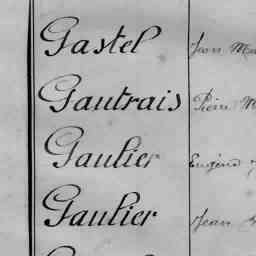 Gastel Jean
Gautrais Pierre M
Gaulier Eugène
Gaulier Jean